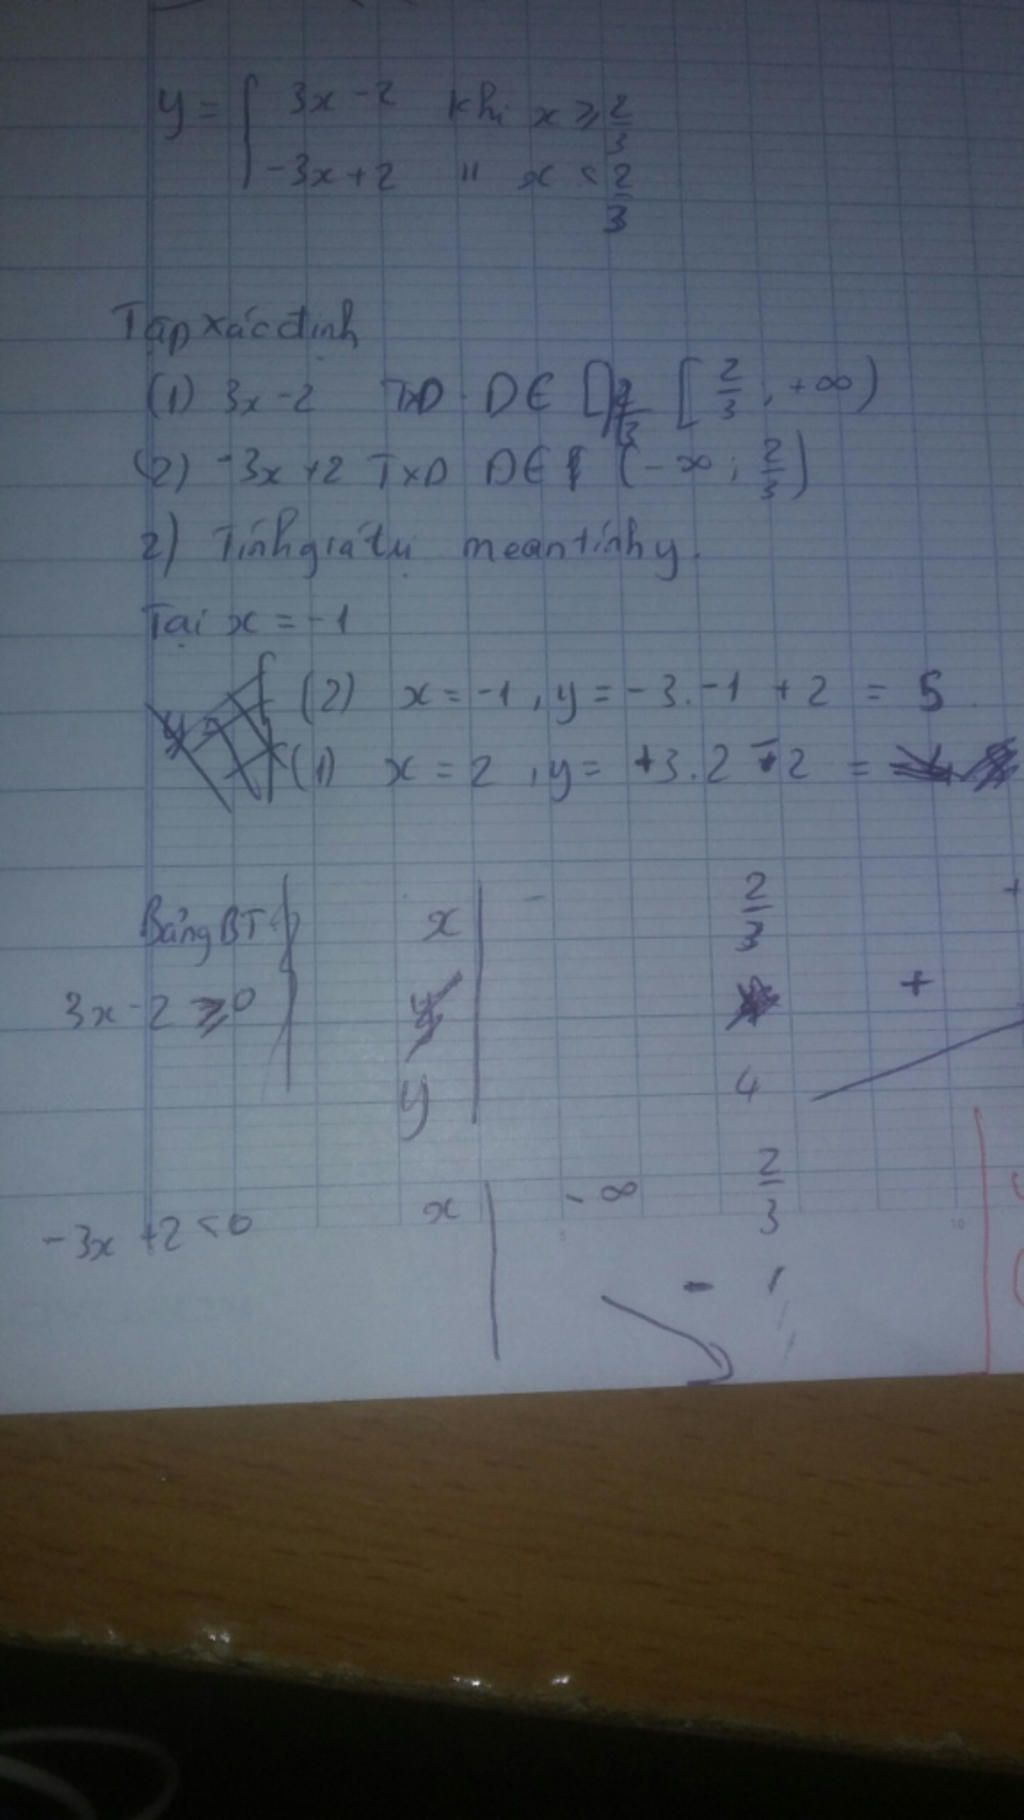 y = { 3x - 2 khi x ≥ 2/3
-3x + 2 " x < 2/3
Tập xác định
(1) 3x - 2 TXD D ∈ [ 2/3 ; +∞)
(2) -3x + 2 TXD D ∈ (-∞ ; 2/3)
2) Tính giá trị
Tại x = -1
(2) x = -1 , y = -3 . -1 + 2 = 5
(1) x = 2 , y = +3 . 2 - 2 =
Bảng BT x - 2/3 +
3x - 2 ≥ 0 +
y 4
-3x + 2 < 0 x -∞ 2/3
- 1